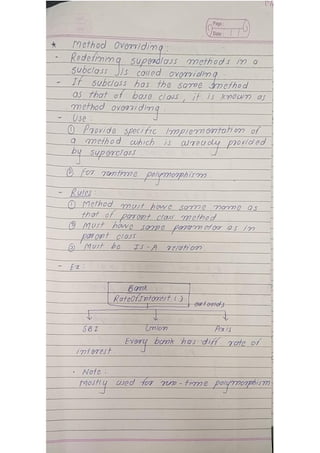 Page:
Date: / /
* Method Overriding :
- Redefining superclass methods in a
subclass is called overriding
- If subclass has the same method
as that of base class, it is known as
method overriding
- Use
① Provide specific implementation of
a method which is already provided
by superclass
② For runtime polymorphism
- Rules
① Method must have same name as
that of parent class method
② Must have same parameter as in
parent class
③ Must be IS-A relation
- Ex
Bank
RateOfInterest()
extends
SBI Union Axis
Every bank has diff rate of
interest
- Note :
Mostly used for run-time polymorphism